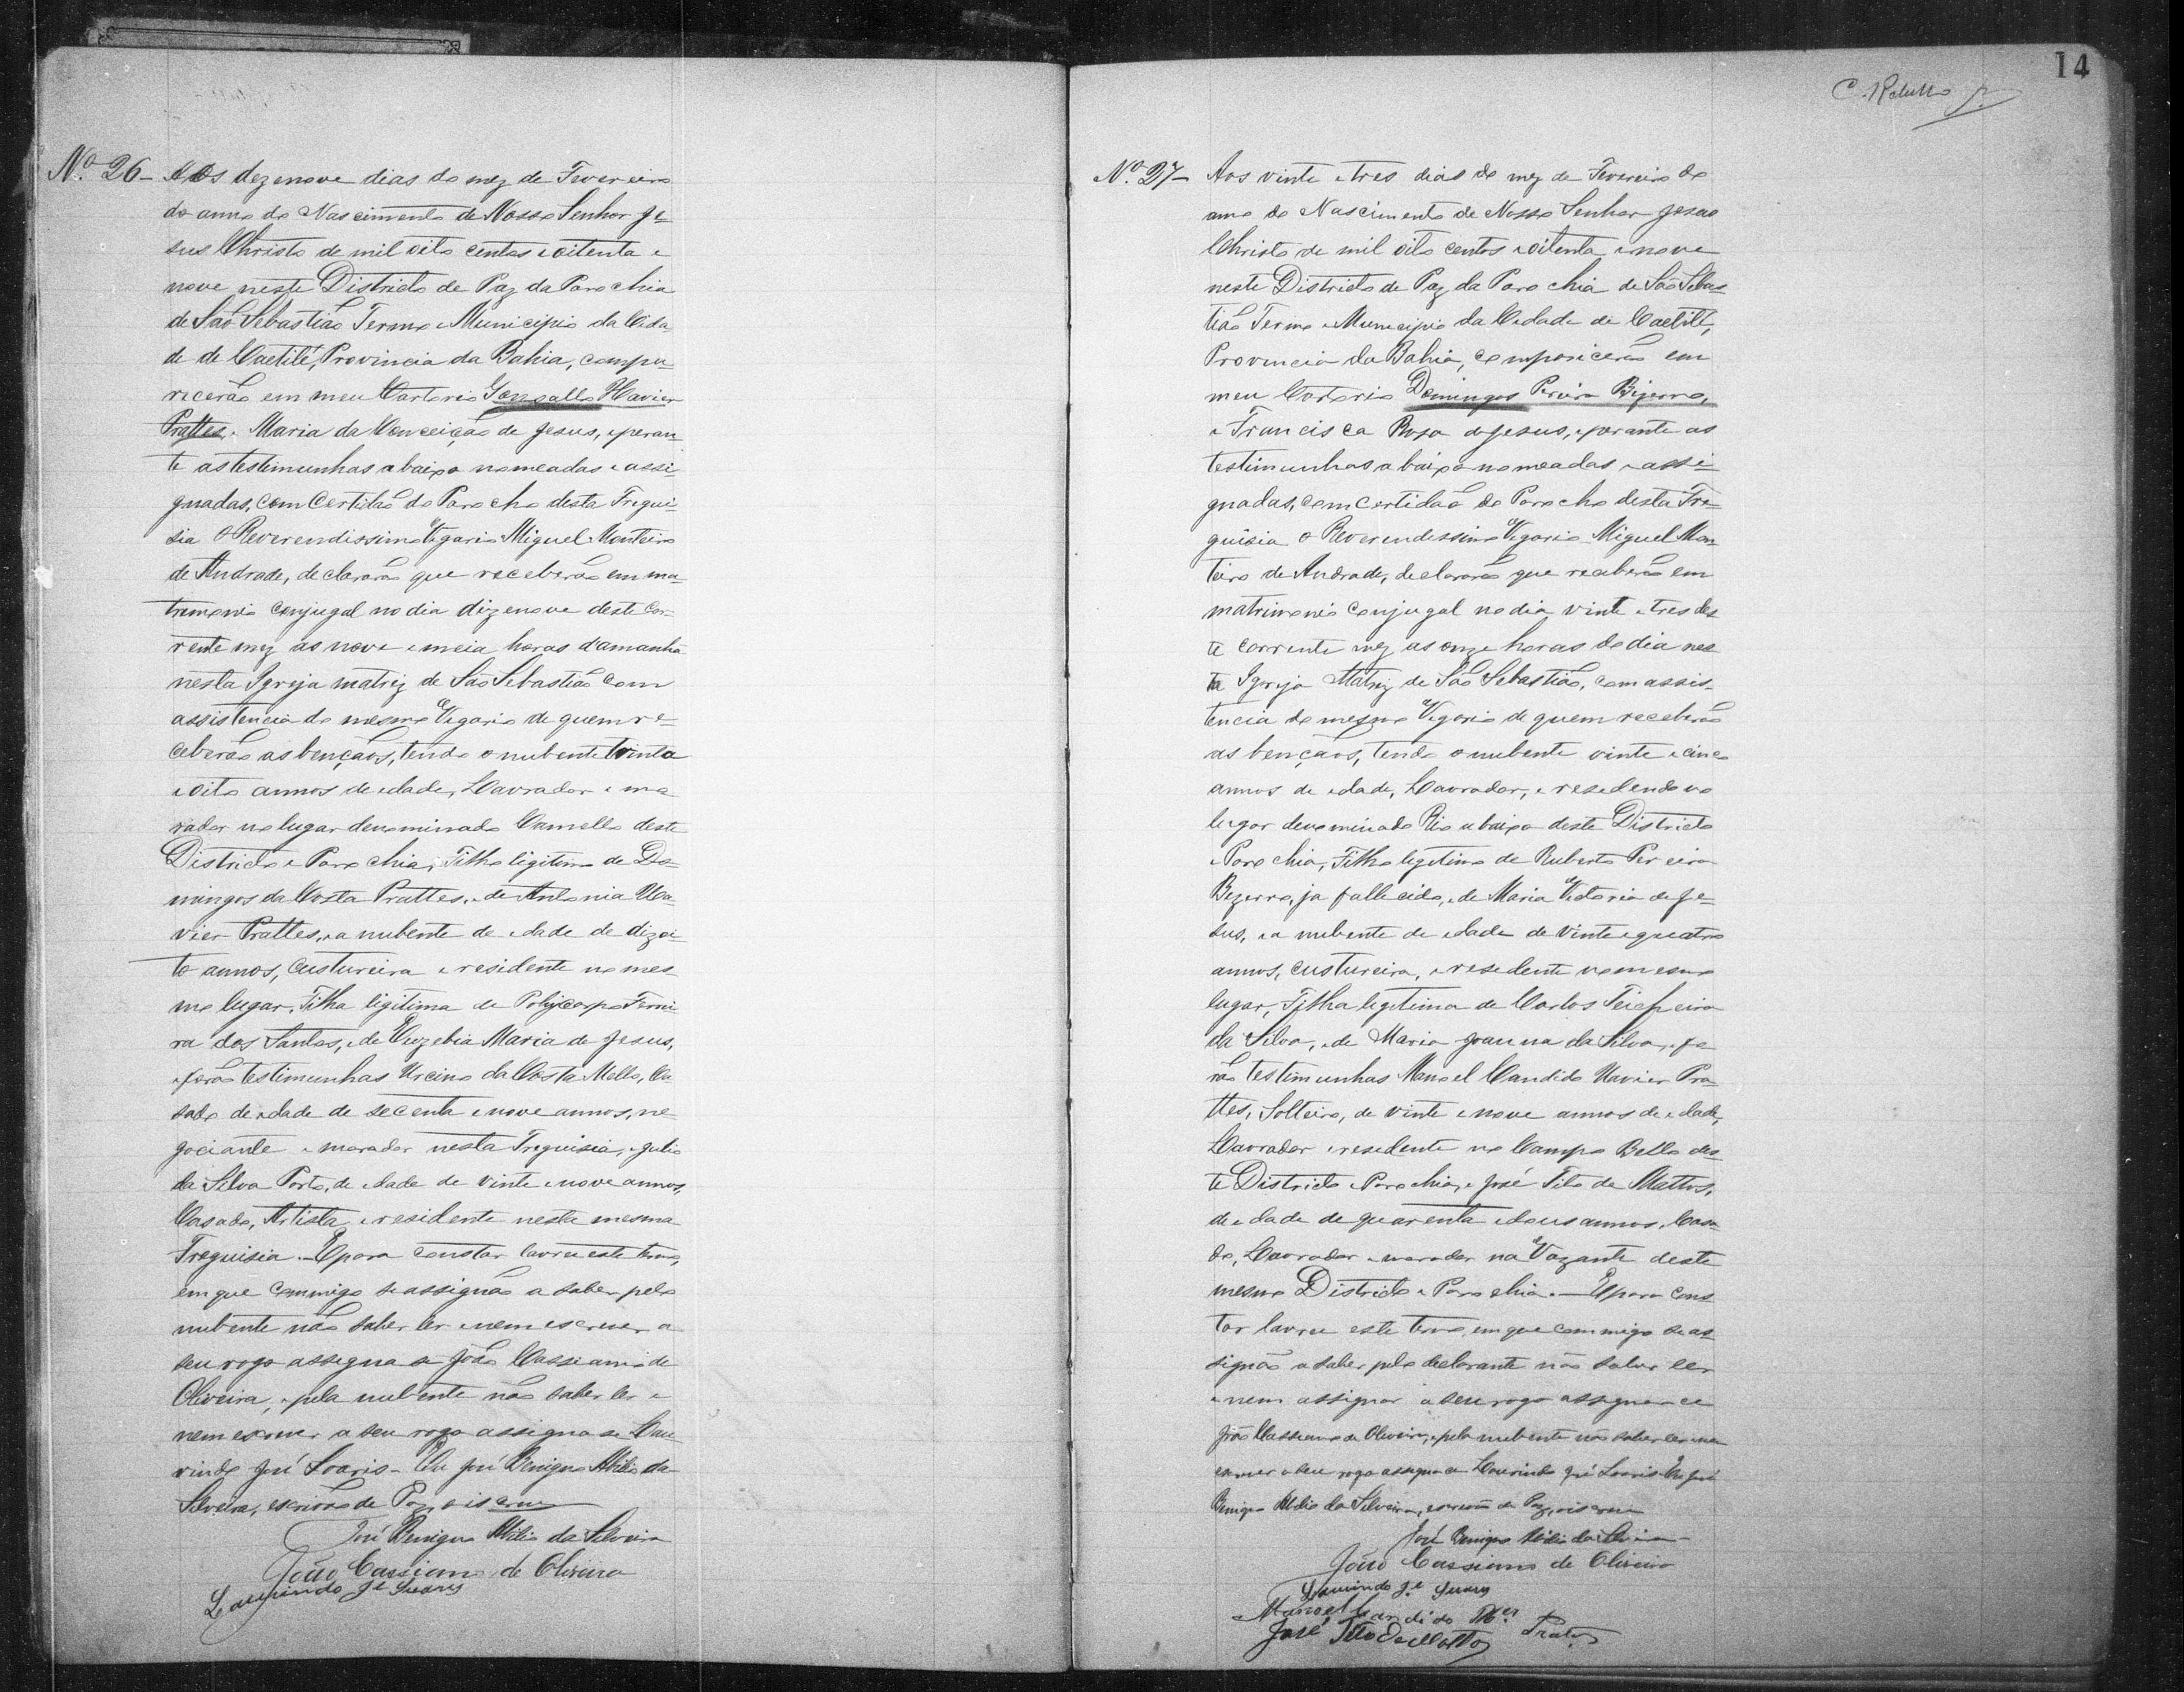 Nº 26 - Aos dezenove dias do mez de Fevereiro
do anno do Nascimento de Nosso Senhor Je-
sus Christo de mil oito centos e oitenta e
nove neste Districto de Paz da Parochia
de São Sebastião Termo e Municipio da Cida
de de Caetité, Provincia da Bahia, compa-
recerão em meu Cartorio Gonsallo Xavier
Prattes e Maria da Conceição de Jesus, e peran
te as testimunhas abaixo nomeadas e assi-
gnadas, com Certidão do Parocho desta Fregui-
sia o Reverendissimo Vegario Miguel Monteiro
de Andrade, declararão que receberão em ma-
tremonio conjugal no dia dizenove deste cor-
rente mez as nove e meia horas d'amanhã
nesta Igreja matriz de São Sebastião com
assistencia do mesmo Vegario de quem re-
ceberão as bençãos, tendo o nubente trinta
e oito annos de edade, Lavrador e mo
rador no lugar denominado Camello deste
Districto e Parochia, Filho ligitimo de Do-
mingos da Costa Prattes, e de Antonia Xa-
vier Prattes, e a nubente de edade de dizoi-
to annos, custureira e residente no mes
mo lugar, Filha ligitima de Polycarpo Ferrei
ra dos Santos, e de Euzebia Maria de Jesus,
e forão testimunhas Urcino da Costa Mello, Ca
sado de edade de secenta e nove annos, ne-
gociante e morador nesta Freguisia, e Julio
da Silva Porto, de edade de vinte e nove annos,
Casado, Artista e residente nesta mesma
Freguisia. - E para constar lavrei este termo,
em que commigo se assignão a saber pelo
nubente não saber ler e nem escrever a
seu rogo assegna se João Cassiano de
Oliveira, e pela nubente não saber ler e
nem escrever a seu rogo assigna se Lau
rindo José Soaris - Eu José Benigno Abilio da
Silveira, escrivão de Paz, o iscrevi
José Benigno Abilio da Silveira
João Cassiano de Oliveira
Laurindo Jé Suares
14
Nº. 27 - Aos vinte e tres dias do mez de Fevereiro do
anno do Nascimento de Nosso Senhor Jesus
Christo de mil oito centos e oitenta e nove
neste Districto de Paz da Parochia de São Sebas
tião Termo e Municipio da Cidade de Caetité,
Provincia da Bahia, compariceram em
meu Cartorio Domingos Pereira Bizerra,
e Francisca Rosa de Jesus, e perante as
testimunhas abaixo nomeadas e assi-
gnadas, com certidão do Parocho desta Fre-
guisia o Reverendissimo Vegario Miguel Mon
teiro de Andrade, declararão que receberão em
matrimonio conjugal no dia vinte e tres des
te corrente mez as onze horas do dia nes
ta Igreja Matriz de São Sebastião, com assis-
tencia do mesmo Vegario de quem receberão
as bençãos, tendo o nubente vinte e cinco
annos de edade, Lavrador, e resedendo no
lugar denominado Rio abaixo deste Districto
e Parochia, Filho legitimo de Ruberto Pereira
Bezerra, ja fallecido, e de Maria Victoria de Je-
sus, e a nubente de edade de vinte e quatro
annos, custureira, e resedente no mesmo
lugar, Filha legitima de Carlos Teixeira
da Silva, e de Maria Joanna da Silva, e fo
rão testimunhas Manoel Candido Xavier Pra-
ttes, Solteiro, de vinte e nove annos de edade,
Lavrador e resedente no Campo Bello des-
te Districto e Parochia, e José Tito de Mattos,
de edade de quarenta e dous annos, Casa
do, Lavrador e morador na Vazante deste
mesmo Districto e Parochia. - E para cons
tar lavrei este termo, em que commigo se as
signão a saber pelo declarante não saber ler
e nem assignar a seu rogo assigna ce
João Cassiano de Oliveira, e pela nubente não saber ler e nem
escrever a seu rogo assigna ce Laurindo José Soaris. Eu José
Benigno Abilio da Silveira, escrivão de Paz, o iscrevi
José Benigno Abilio da Silveira
João Cassiano de Oliveira
Laurindo Jé Suares
Manoel Candido Xer Prates
José Tito de Mattos